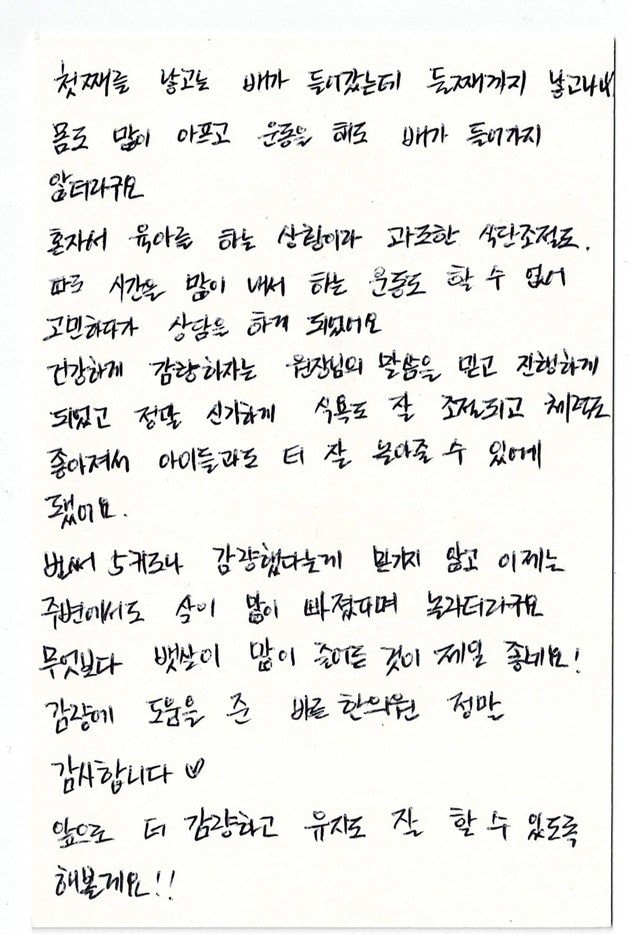 첫째를 낳고는 배가 들어갔는데 둘째까지 낳고나니
몸도 많이 아프고 운동을 해도 배가 들어가지
않더라구요
혼자서 육아를 하는 상황이라 과도한 식단조절도.
따로 시간을 많이 내서 하는 운동도 할 수 없어
고민하다가 상담을 하게 되었어요
건강하게 감량하자는 원장님의 말씀을 믿고 진행하게
되었고 정말 신기하게 식욕도 잘 조절되고 체력도
좋아져서 아이들과도 더 잘 놀아줄 수 있에게
됐어요.
벌써 5키로나 감량했다는게 믿기지 않고 이제는
주변에서도 살이 많이 빠졌다며 놀라더라구요
무엇보다 뱃살이 많이 줄어든 것이 제일 좋네요!
감량에 도움을 준 바로한의원 정말
감사합니다 ♡
앞으로 더 감량하고 유지도 잘 할 수 있도록
해볼게요!!